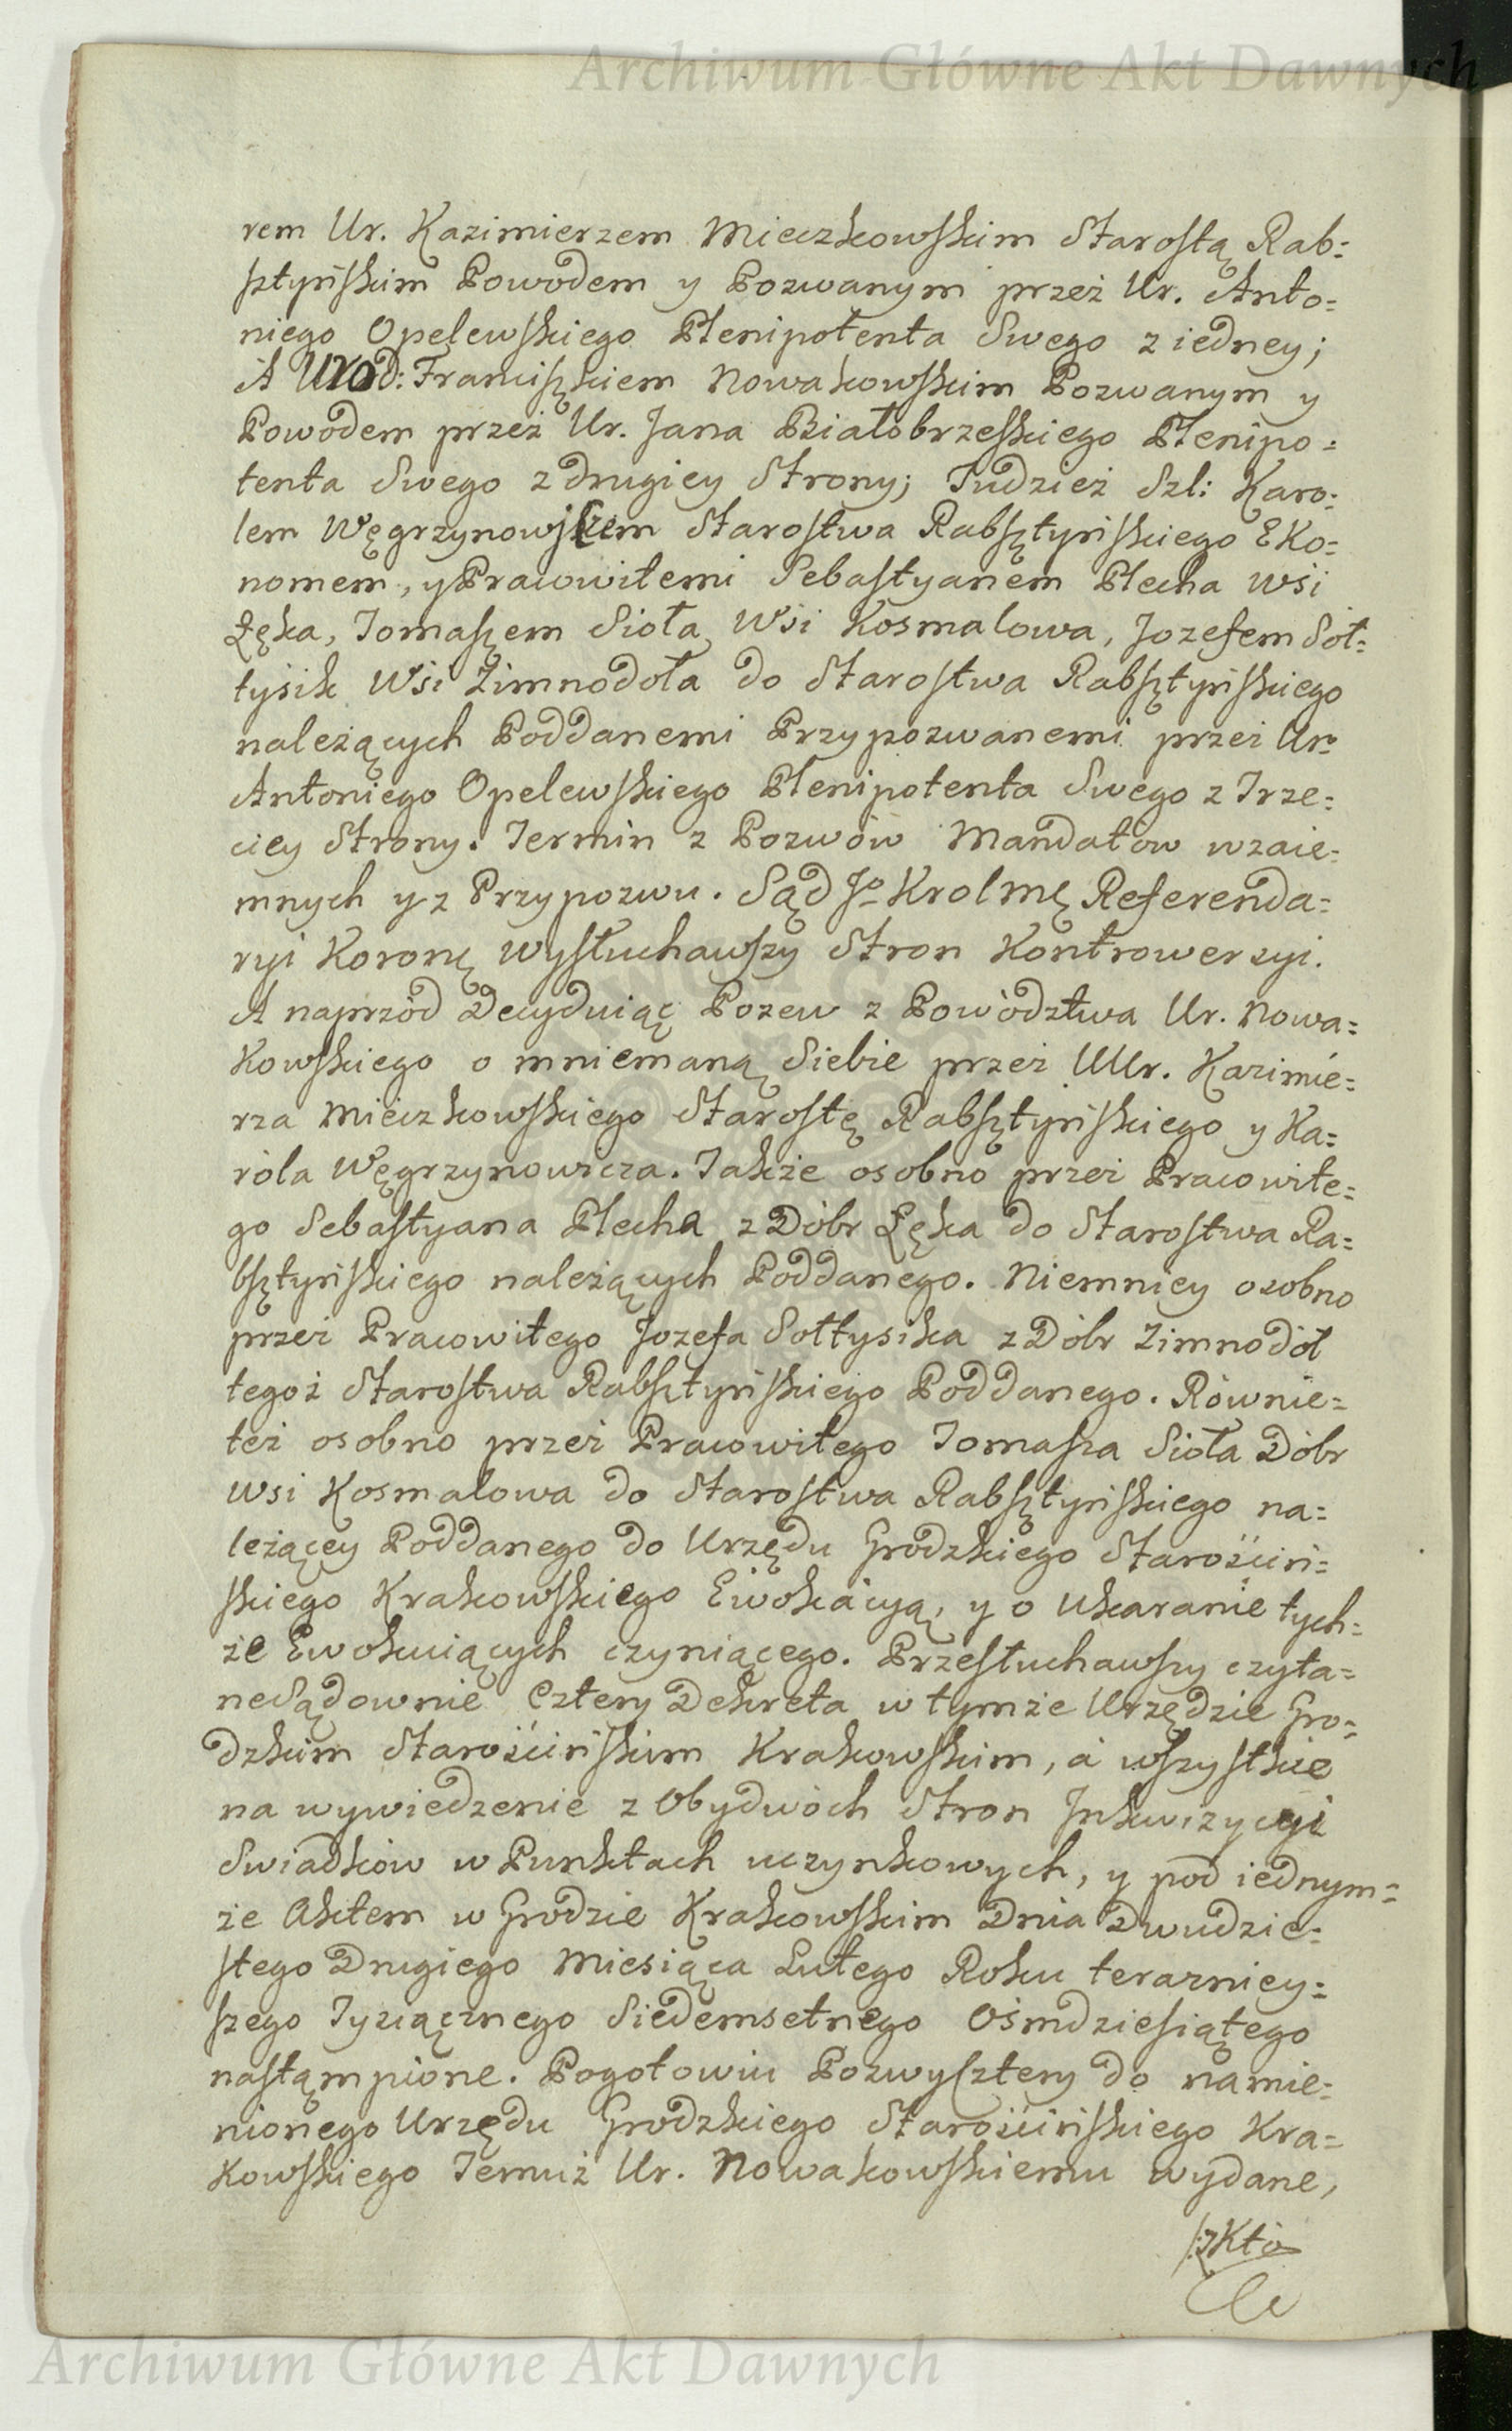 Archiwum Główne Akt Dawnych
rem Ur. Kazimierzem Mieczkowskim Starostą Rab=
sztyńskim Powodem y Pozwanym przez Ur. Anto=
niego Opelewskiego Plenipotenta Swego z iedney;
A Urod: Franciszkiem Nowakowskim Pozwanym y
Powodem przez Ur. Jana Białobrzeskiego Plenipo=
tenta Swego z drugiey Strony; Tudzież Szl: Karo=
lem Węgrzynowiczem Starostwa Rabsztyńskiego Eko=
nomem, y Pracowitemi Sebastyanem Plecha Wsi
Łęka, Tomaszem Sioła Wsi Kosmalowa, Jozefem Soł=
tysik Wsi Zimnodoła do Starostwa Rabsztyńskiego
należących Poddanemi Przypozwanemi przez Ur.
Antoniego Opelewskiego Plenipotenta Swego z Trze=
ciey Strony. Termin z Pozwów Mandatow wzaie=
mnych y z Przypozwu. Sąd Jo Krolmę Referenda=
ryi Koronę Wysłuchawszy Stron Kontrowersyi.
A naprzód Decyduiąc Pozew z Powództwa Ur. Nowa=
kowskiego o mniemaną Siebie przez UUr. Kazimie=
rza Mieczkowskiego Starostę Rabsztyńskiego y Ka=
róla Węgrzynowicza. Także osobno przez Pracowite=
go Sebastyana Plecha z Dóbr Łęka do Starostwa Ra=
bsztyńskiego należących Poddanego. Niemniey osobno
przez Pracowitego Jozefa Sołtysika z Dóbr Zimnodół
tegoż Starostwa Rabsztyńskiego Poddanego. Równie=
też osobno przez Pracowitego Tomasza Sioła Dóbr
Wsi Kosmalowa do Starostwa Rabsztyńskiego na=
leżącey Poddanego do Urzędu Grodzkiego Starościń=
skiego Krakowskiego Ewokacyą, y o ukaranie tych=
że Ewokuiących czyniącego. Przesłuchawszy czyta=
ne Sądownie Cztery Dekreta w tymże Urzędzie Gro=
dzkim Starościńskim Krakowskim, a wszystkie
na wywiedzenie z Obydwóch Stron Inkwizycyi
Swiadków w Punktach uczynkowych, y pod iednym=
że Aktem w Grodzie Krakowskim Dnia Dwudzie=
stego Drugiego Miesiąca Lutego Roku terazniey=
szego Tysiącznego Siedemsetnego Ośmdziesiątego
nastąmpione. Pogotowiu Pozwy cztery do namie=
nionego Urzędu Grodzkiego Starościńskiego Kra=
kowskiego Temuż Ur. Nowakowskiemu wydane,
Archiwum Główne Akt Dawnych